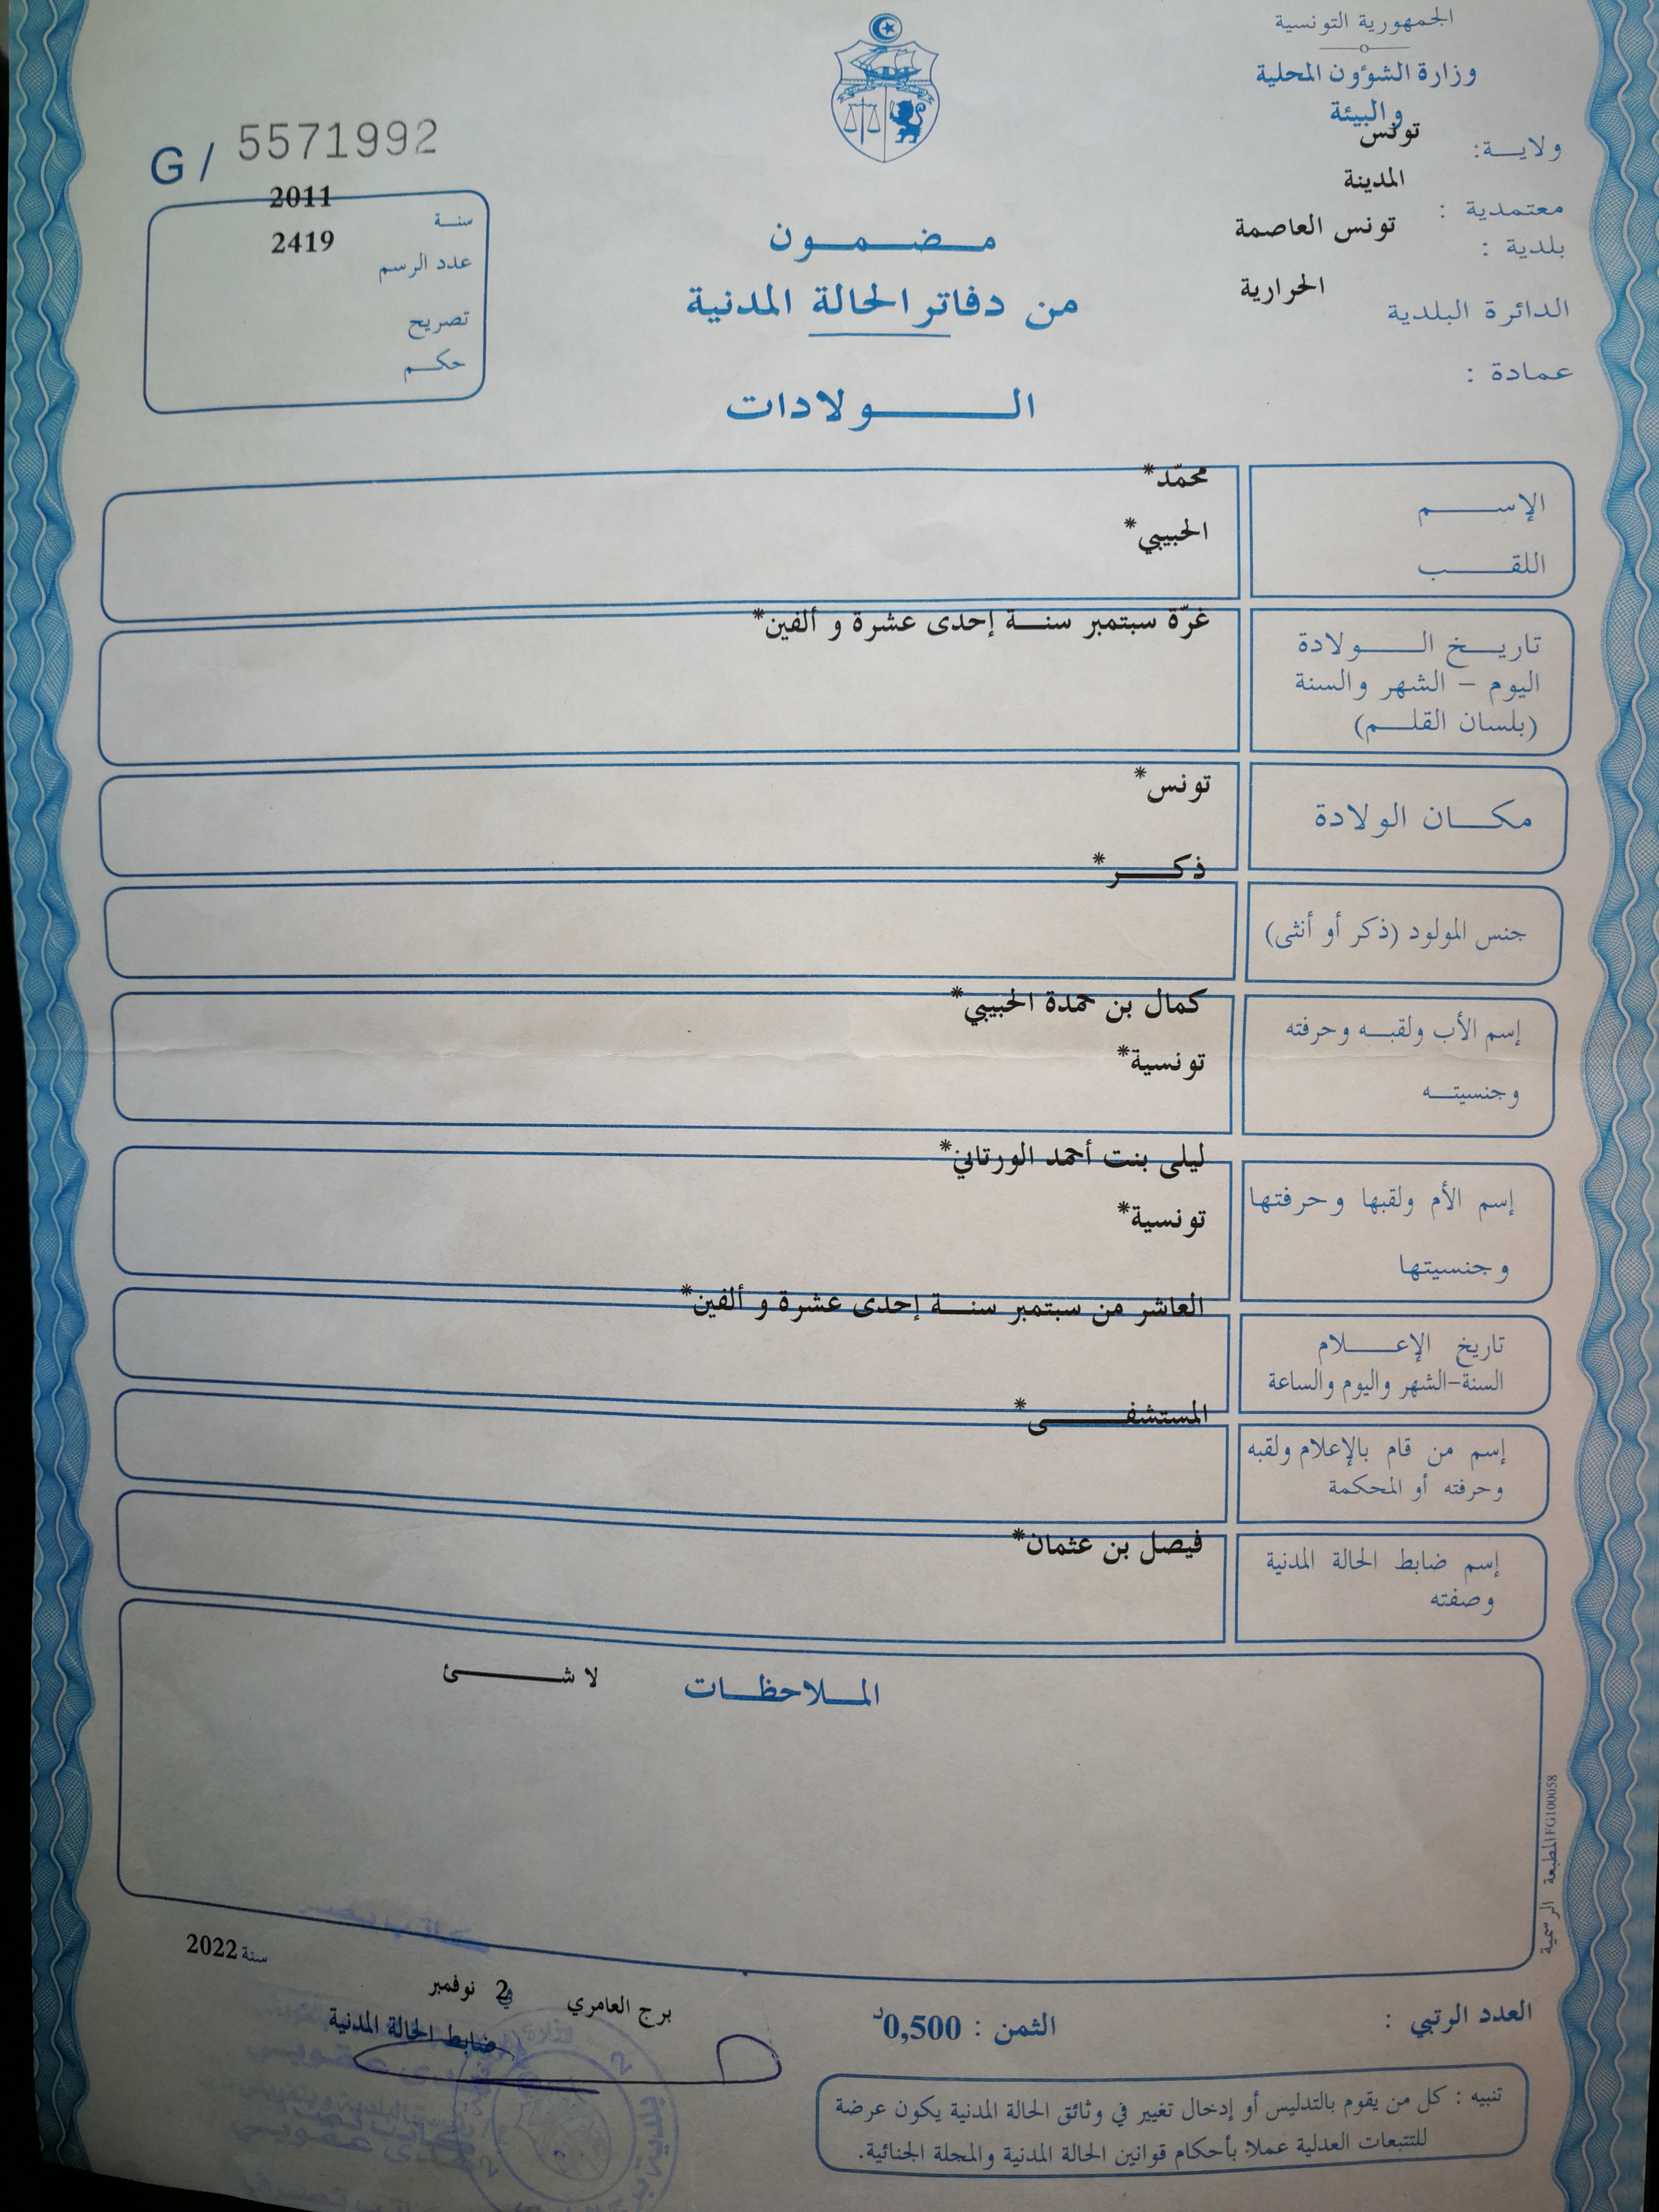 الجمهورية التونسية
وزارة الشؤون المحلية
والبيئة
ولايـــة: تونس
المدينة
معتمدية :
بلدية : تونس العاصمة
الدائرة البلدية الحرارية
عمادة :
G / 5571992
سنــة 2011
عدد الرسم 2419
تصريح
حكــم
مـضـمـون
من دفاتر الحالة المدنية
الـــولادات
الإســـم محمّد*
اللقــب الحبيبي*
تاريـخ الــولادة غرّة سبتمبر سنــة إحدى عشرة و ألفين*
اليوم – الشهر والسنة
(بلسان القلـم)
مكــان الولادة تونس*
ذكــر*
جنس المولود (ذكر أو أنثى)
إسم الأب ولقبـه وحرفته كمال بن حمدة الحبيبي*
وجنسيتـه تونسية*
إسم الأم ولقبها وحرفتها ليلى بنت أحمد الورتاني*
وجنسيتها تونسية*
تاريخ الإعــلام العاشر من سبتمبر سنــة إحدى عشرة و ألفين*
السنة-الشهر واليوم والساعة
إسم من قام بالإعلام ولقبه المستشفــى*
وحرفته أو المحكمة
إسم ضابط الحالة المدنية فيصل بن عثمان*
وصفته
الملاحظـات لا شــئ
المطبعة الرسمية FG100058
سنة 2022
برج العامري في 2 نوفمبر
ضابط الحالة المدنية
العدد الرتبي :
الثمن : 0,500د
تنبيه : كل من يقوم بالتدليس أو إدخال تغيير في وثائق الحالة المدنية يكون عرضة
للتتبعات العدلية عملا بأحكام قوانين الحالة المدنية والمجلة الجنائية.